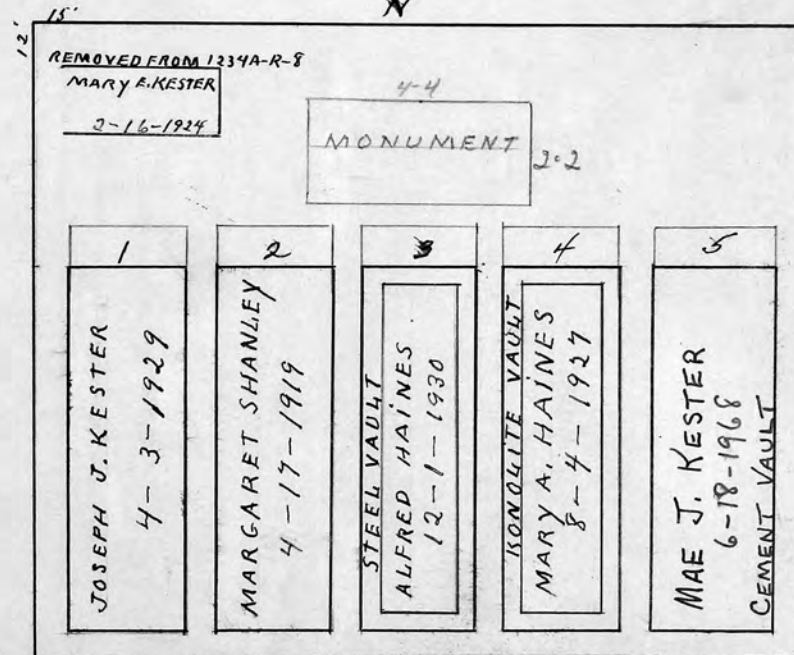 N
15'
12'
REMOVED FROM 1234A-R-8
MARY E. KESTER
2-16-1924
4-4
MONUMENT
2-2
1
JOSEPH J. KESTER
4-3-1929
2
MARGARET SHANLEY
4-17-1919
3
STEEL VAULT
ALFRED HAINES
12-1-1930
4
VAULT
MARY A. HAINES
8-4-1927
5
MAE J. KESTER
6-18-1968
CEMENT VAULT